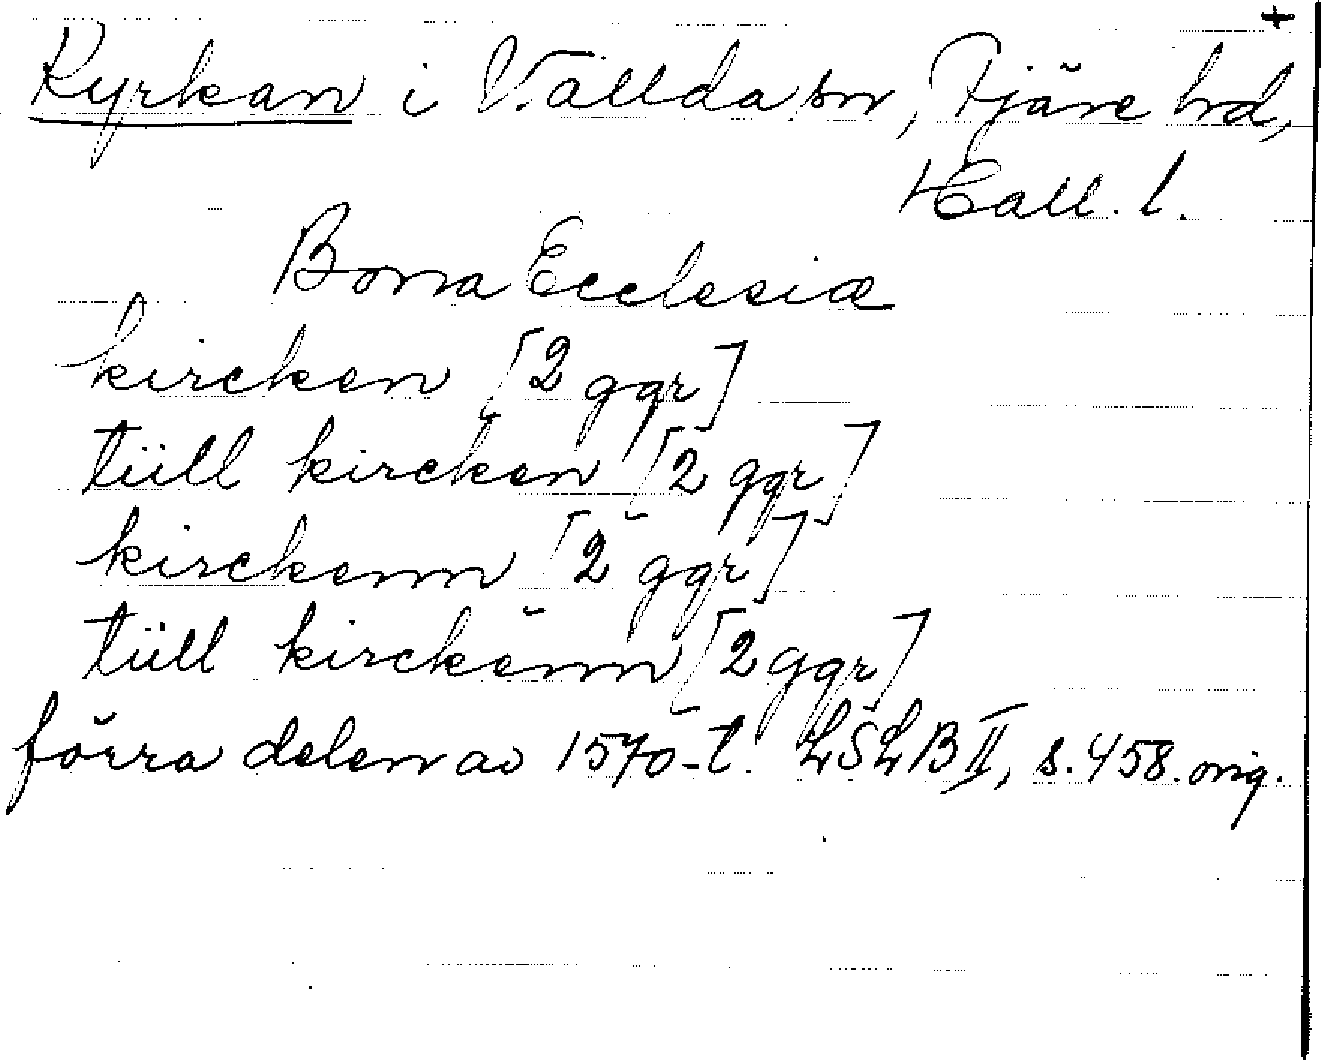 +
Kyrkan i Vallda sn, Fjäre hd,
Hall. l.
Bona Ecclesiæ
kircken [2 ggr]
tüll kircken [2 ggr]
kirckenn [2 ggr]
tüll kirckenn [2 ggr]
förra delen av 1570-t. LSLB II, s. 458. orig.